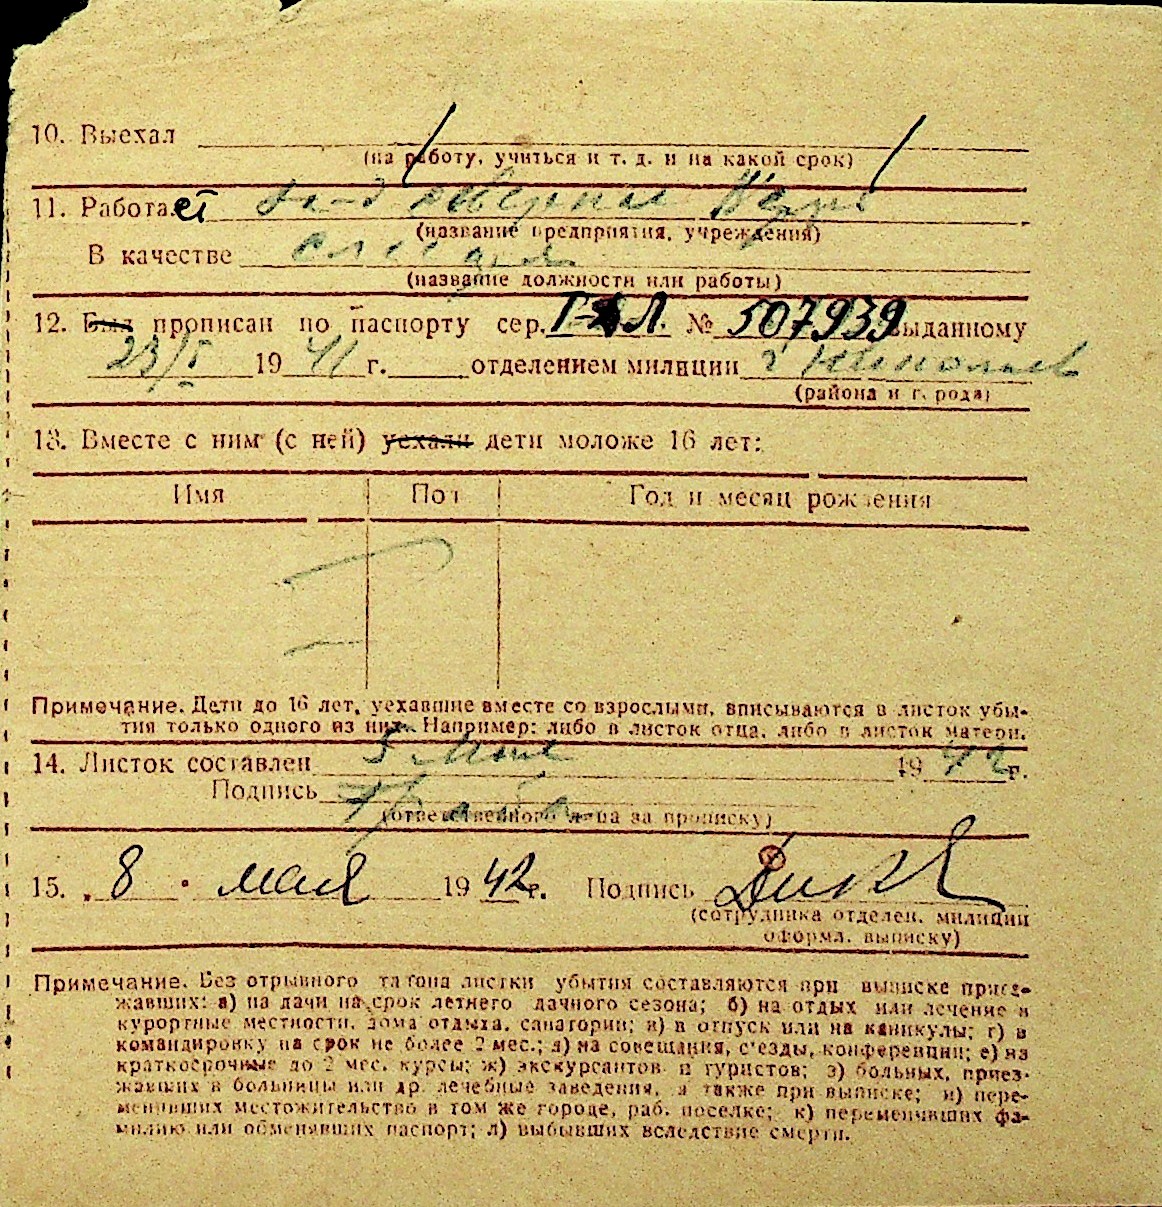 10. Выехал
(на работу, учиться и т. д. и на какой срок)
11. Работает
(название предприятия, учреждения)
В качестве слесаря
(название должности или работы)
12. Был прописан по паспорту сер. Л. № 507939 выданному
23/V 1941 г. отделением милиции г Николаев
(района и города)
13. Вместе с ним (с ней) уехали дети моложе 16 лет:
Имя Пол Год и месяц рождения
Примечание. Дети до 16 лет, уехавшие вместе со взрослыми, вписываются в листок убы-
тия только одного из них. Например: либо в листок отца, либо в листок матери.
14. Листок составлен 5 мая 1942 г.
Подпись
(ответственного лица за прописку)
15. „8" мая 1942 г. Подпись
(сотрудника отделен. милиции
оформл. выписку)
Примечание. Без отрывного талона листки убытия составляются при выписке приез-
жавших: а) на дачи на срок летнего дачного сезона; б) на отдых или лечение в
курортные местности, дома отдыха, санатории; в) в отпуск или на каникулы; г) в
командировку на срок не более 2 мес.; д) на совещания, с'езды, конференции; е) на
краткосрочные до 2 мес. курсы; ж) экскурсантов и туристов; з) больных, приез-
жавших в больницы или др. лечебные заведения, а также при выписке; и) пере-
менивших местожительство в том же городе, раб. поселке; к) переменивших фа-
милию или обменявших паспорт; л) выбывших вследствие смерти.